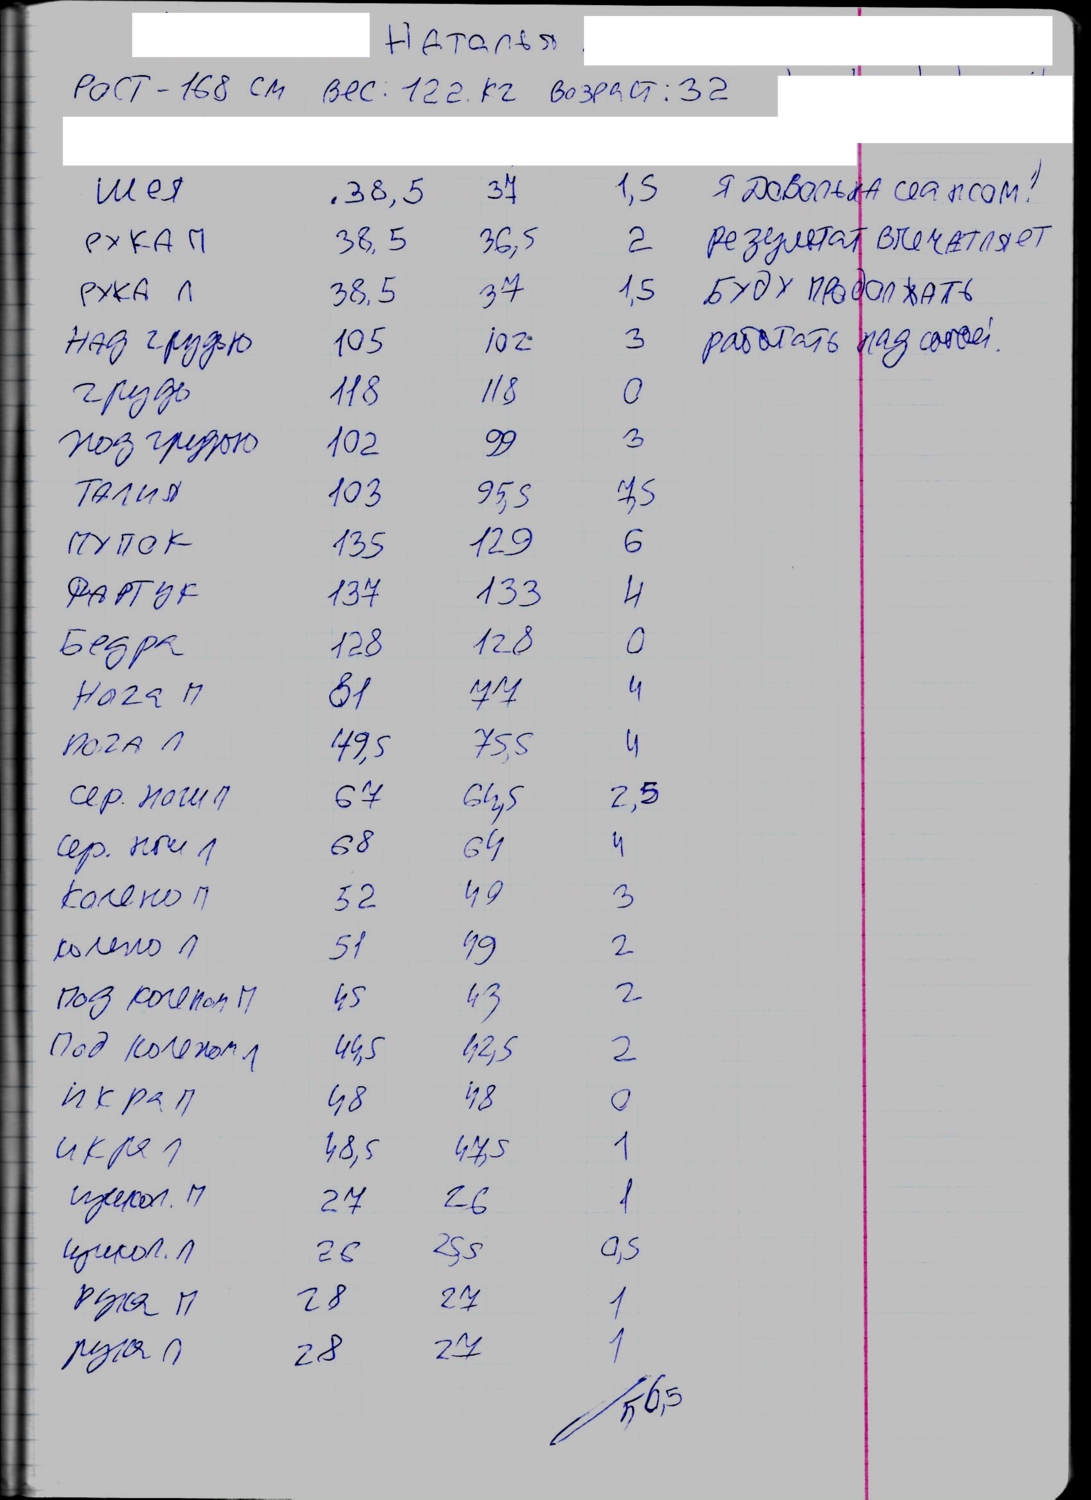 Наталья
Рост - 168 см вес: 122.кг возраст: 32
шея .38,5 37 1,5 я довольна сеансом!
рука П 38,5 36,5 2 результат впечатляет
рука Л 38,5 37 1,5 буду продолжать
над грудью 105 102 3 работать над собой!.
грудь 118 118 0
под грудью 102 99 3
талия 103 95,5 7,5
пупок 135 129 6
фартук 137 133 4
Бедра 128 128 0
Нога П 81 77 4
нога Л 79,5 75,5 4
сер. ноги П 67 64,5 2,5
сер. ноги Л 68 64 4
колено П 52 49 3
колено Л 51 49 2
под коленом П 45 43 2
Под коленом Л 44,5 42,5 2
икра П 48 48 0
икра Л 48,5 47,5 1
щикол. П 27 26 1
щикол. Л 26 25,5 0,5
рука П 28 27 1
рука Л 28 27 1
56,5